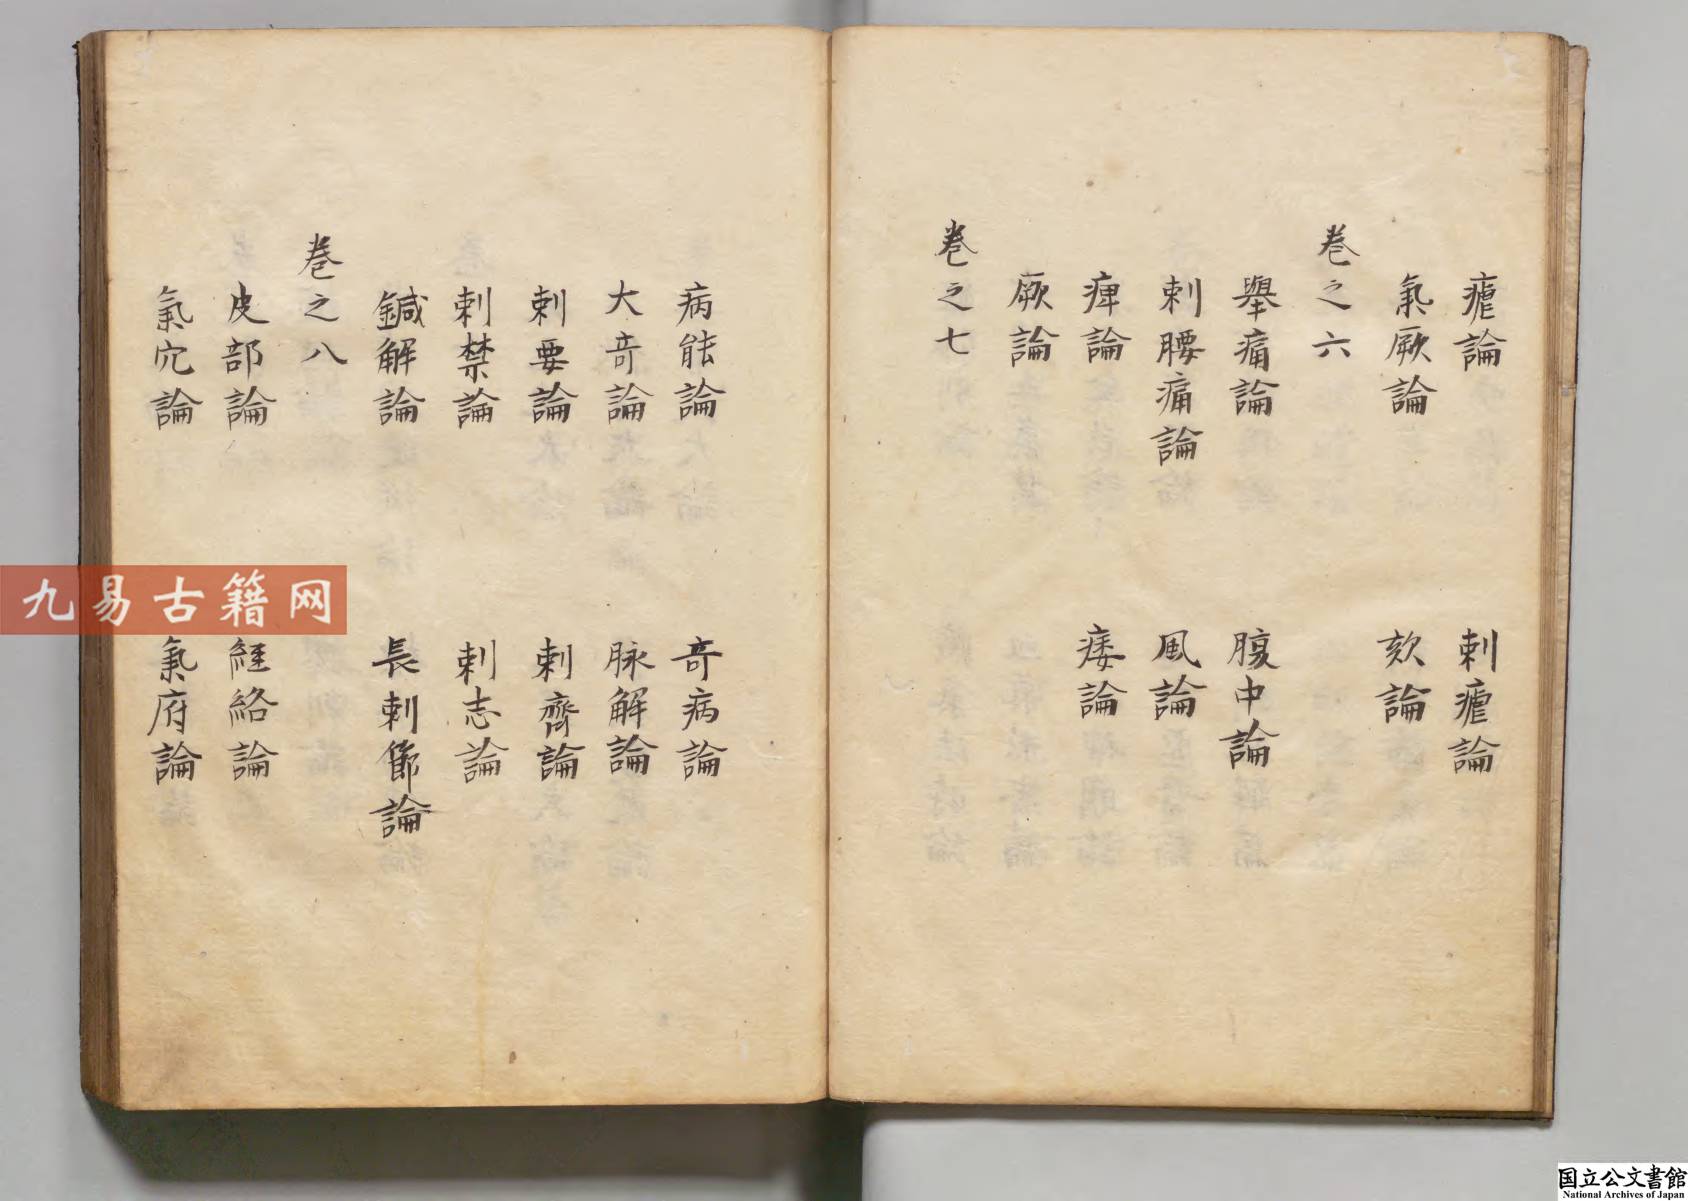 瘧論 刺瘧論
氣厥論 欬論
卷之六
舉痛論 腹中論
刺腰痛論 風論
痺論 痿論
厥論
卷之七
病能論 奇病論
大奇論 脉解論
刺要論 刺齊論
刺禁論 刺志論
鍼解論 長刺節論
卷之八
皮部論 經絡論
氣穴論 氣府論
九易古籍网
国立公文書館
National Archives of Japan